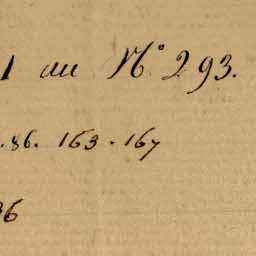 1 au N° 293.
.86. 163 - 167
36